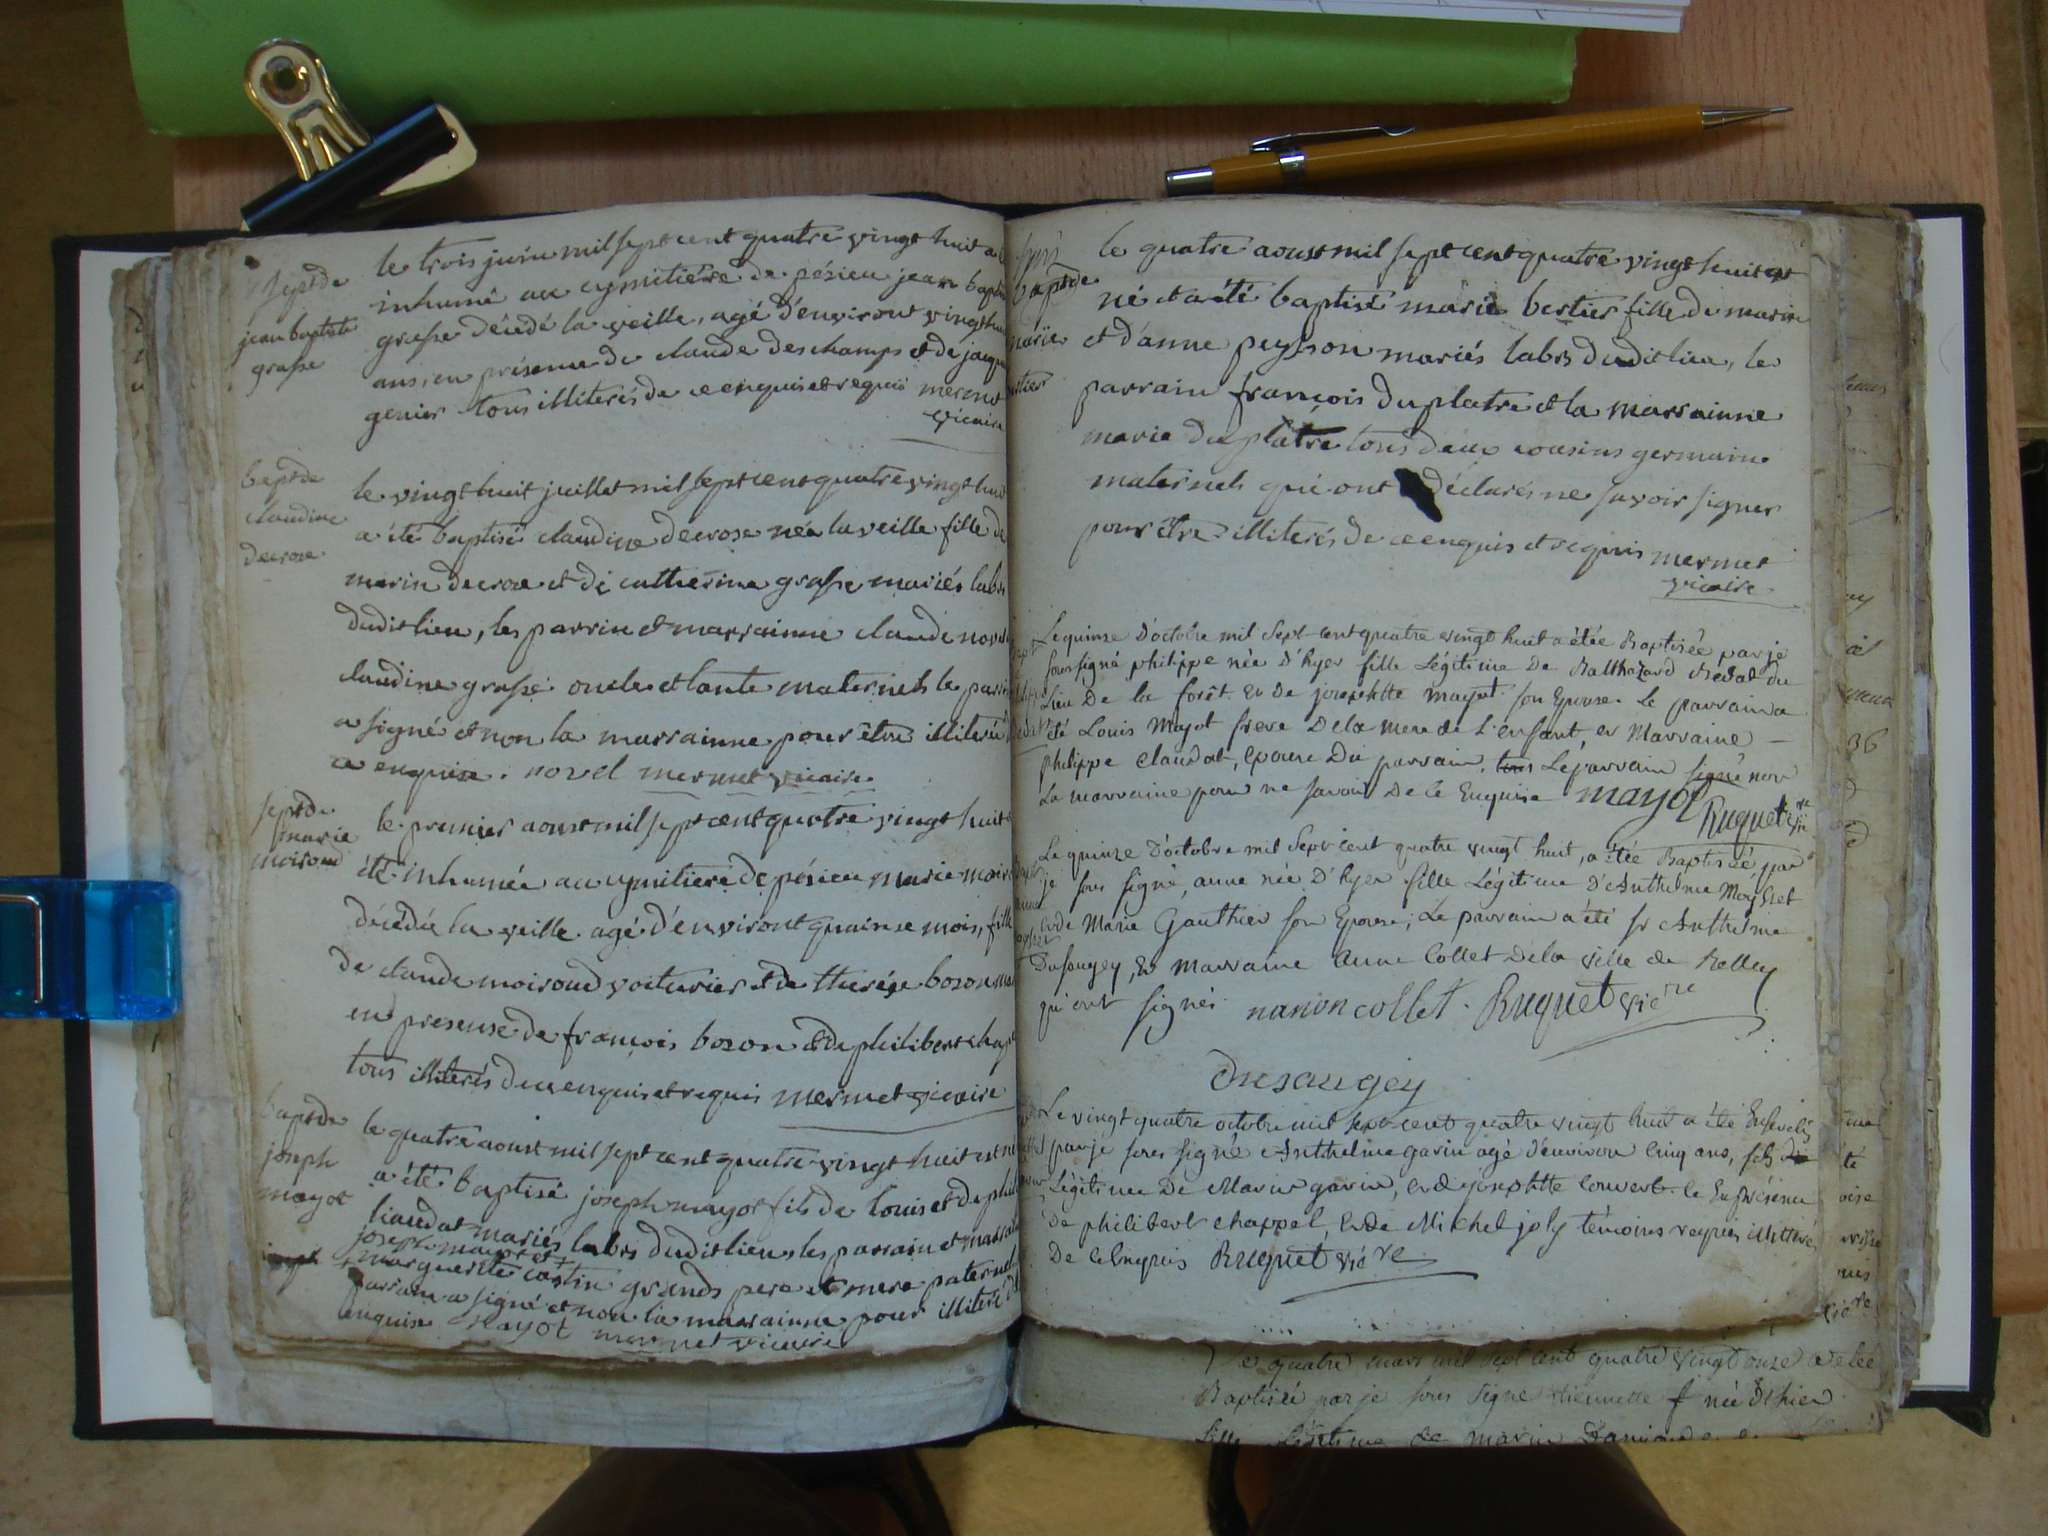 septde
jean baptiste
grasse
le trois juin mil sept cent quatre vingt huit a
inhumé au cymitiere de pésieu jean bapti
grasse décédé la veille, agé d'environt vingt hui
ans en présence de claude deschamps et de jacque
genier tous illiterés de ce enquis et requis mermet
vicaire
baptde
claudine
decroze
le vingt huit juillet mil sept cent quatre vingt huit
a été baptisé claudine decrose née la veille fille de
marin decroze et de catherine grasse mariés labrs
dudit lieu, les parrin et marrainne claude novel
claudine grasse oncle et tante maternels le parrin
a signé et non la marrainne pour être illiteré
ce enquise. novel mermet vicaire
septde
marie
moiroud
le premier aoust mil sept cent quatre vingt huit
été inhumée au cymitiere de pésieu marie moir
décédée la veille agé d'environt quainse mois, fille
de claude moiroud voiturier et de therése bozon
en presense de françois bozon et de philibert chap
tous illiterés de ce enquis et requis mermet vicaire
baptde
joseph
mayot
le quatre aoust mil sept cent quatre vingt huit est né
a été baptisé joseph mayot fils de louis et de phili
liaudat mariés labrs dudit lieu, les parrain et marrai
joseph mayot et
marguerite costin grands pere et mere paternel
parrain a signé et non la marrainne pour illiteré d
enquise mayot mermet vicaire
baptde
marie
le quatre aoust mil sept cent quatre vingt huit est
né et a été baptisé marie bertier fille de marin
et d'anne peysson mariés labrs dudit lieu, le
parrain françois duplatre et la marrainne
marie duplâtre tous deux cousins germains
maternels qui ont déclarés ne savoir signer
pour être illiterés de ce enquis et requis mermet
vicaire
Le quinse d'octobre mil Sept-cent quatre vingt huit a étée Baptisée par je
soussigné philippe née d'hyer fille Légitime De Balthazard Medal du
Lieu De la forêt. et De josephtte mayot son Epouse. Le parrain a
été Louis Mayot frere De la Mere de L'enfant, et Marraine
philippe claudat, Epouse Du parrain. Le parrain signé non
La marraine pour ne savoir De ce Enquise mayot
Ruquet vire
Le quinze d'octobre mil Sept cent quatre vingt huit, a étée Baptisée, par
je sous signé, anne née D'hyer fille Légitime D'Anthelme Moysset
et de Marie Gauthier son Epouse; Le parrain a été sr Anthelme
Dusaugey, et Marraine Anne Collet De la ville de Belley
qui ont signés. nanon collet. Ruquet vicre
Dusaugey
Le vingt quatre octobre mil sept cent quatre vingt huit a été Enseveli
par je sous signé Anthelme gavin agé d'environ cinq ans, fils
Légitime De Marin gavin, et de josephtte Convert. ce En présence
De philibert chappel, et de Michel joly témoins requis illitéré
De ce Enquis Ruquet vicre
36
Le quatre mars mil sept cent quatre vingt onze a été
Baptisée par je sous signé née d'hier
fille Légitime de marin